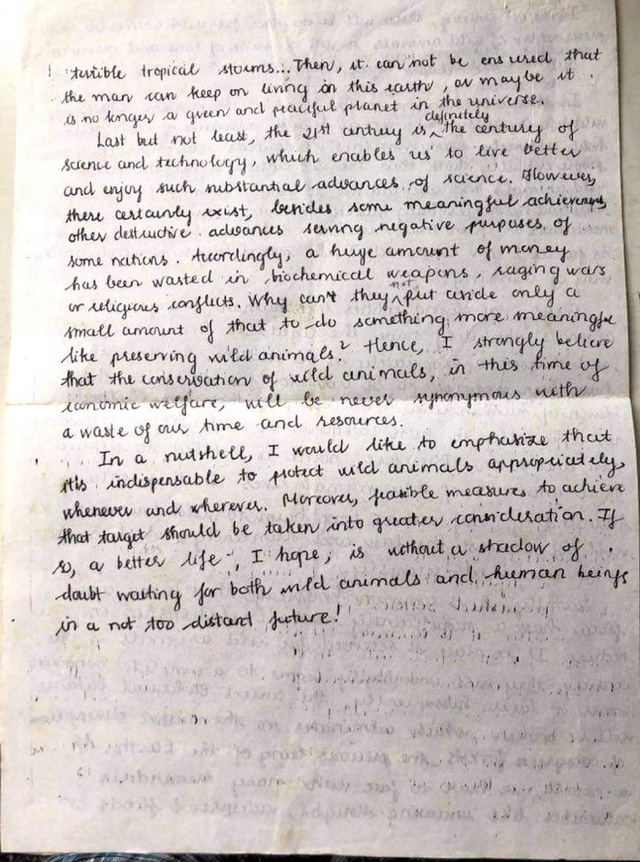 terrible tropical storms... Then, it can not be ensured that
the man can keep on living in this earth, or maybe it
is no longer a green and peaciful planet in the universe.
Last but not least, the 21st century is definitely the century of
science and technology, which enables us to live better
and enjoy such substantial advances of science. However,
there certainly exist, besides some meaningful achievements,
other destructive advances serving negative purposes of
some nations. Accordingly, a huge amount of money
has been wasted in biochemical weapons, raging wars
or religious conflicts. Why can't they not put aside only a
small amount of that to do something more meaningful
like preserving wild animals? Hence, I strongly believe
that the conservation of wild animals, in this time of
economic welfare, will be never synonymous with
a waste of our time and resources.
In a nutshell, I would like to emphasize that
it's indispensable to protect wild animals appropriately,
whenever and wherever. Moreover, feasible measures to achieve
that target should be taken into greater consideration. If
so, a better life, I hope, is without a shadow of
doubt waiting for both wild animals and human beings
in a not too distant future!